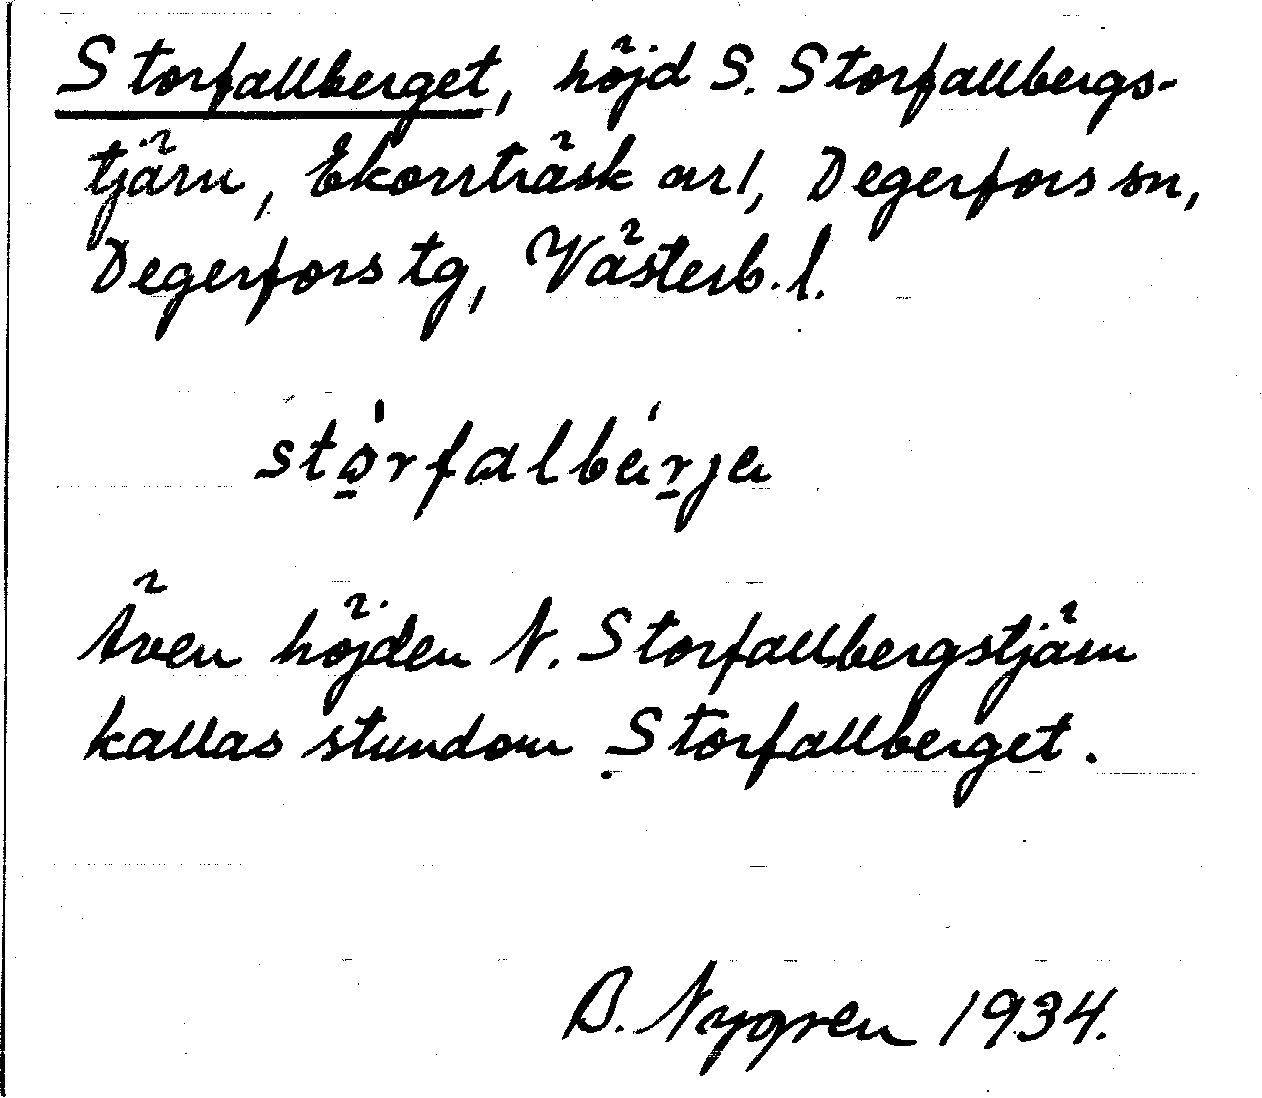 Storfallberget, höjd S. Storfallbergs-
tjärn, Ekorrträsk arl, Degerfors sn,
Degerfors tg, Västerb. l.
stǫ́rfalbáṟja
Även höjden N. Storfallbergstjärn
kallas stundom Storfallberget.
B. Nygren 1934.